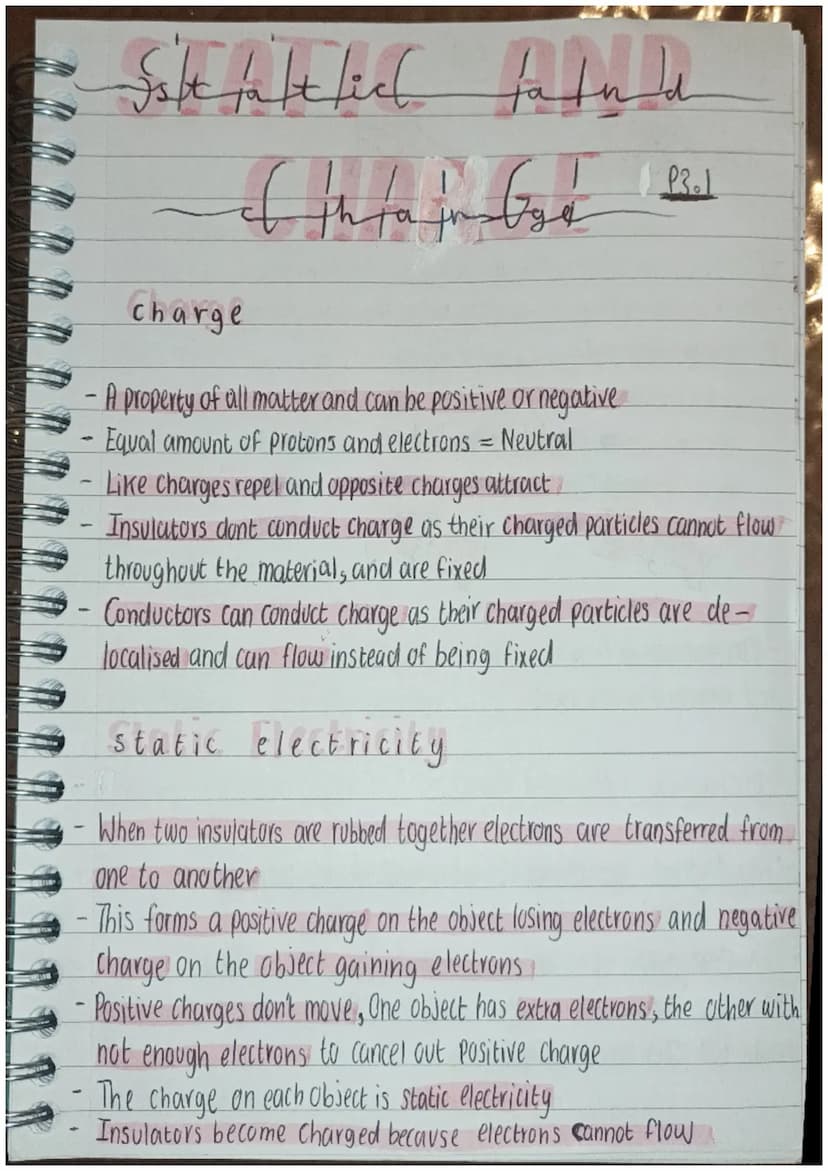 STATIC AND
CHARGE P3.1
Charge
- A property of all matter and can be positive or negative
- Equal amount of protons and electrons = Neutral
- Like charges repel and opposite charges attract
- Insulators dont conduct charge as their charged particles cannot flow
throughout the material, and are fixed
- Conductors can conduct charge as their charged particles are de-
localised and can flow instead of being fixed
Static Electricity
- When two insulators are rubbed together electrons are transferred from
one to another
- This forms a positive charge on the object losing electrons and negative
charge on the object gaining electrons
- Positive charges don't move, One object has extra electrons, the other with
not enough electrons to cancel out positive charge
- The charge on each object is static electricity
- Insulators become charged because electrons cannot flow